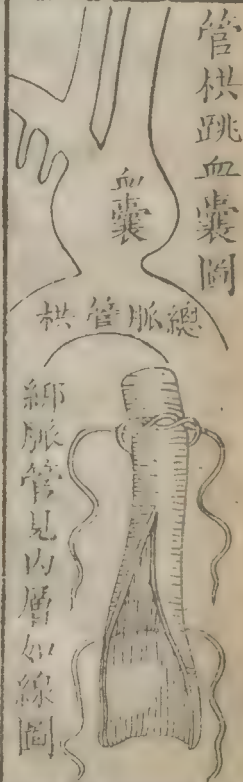 管栱跳血囊圖
血囊
總脈管栱
綁脈管見內層如線圖